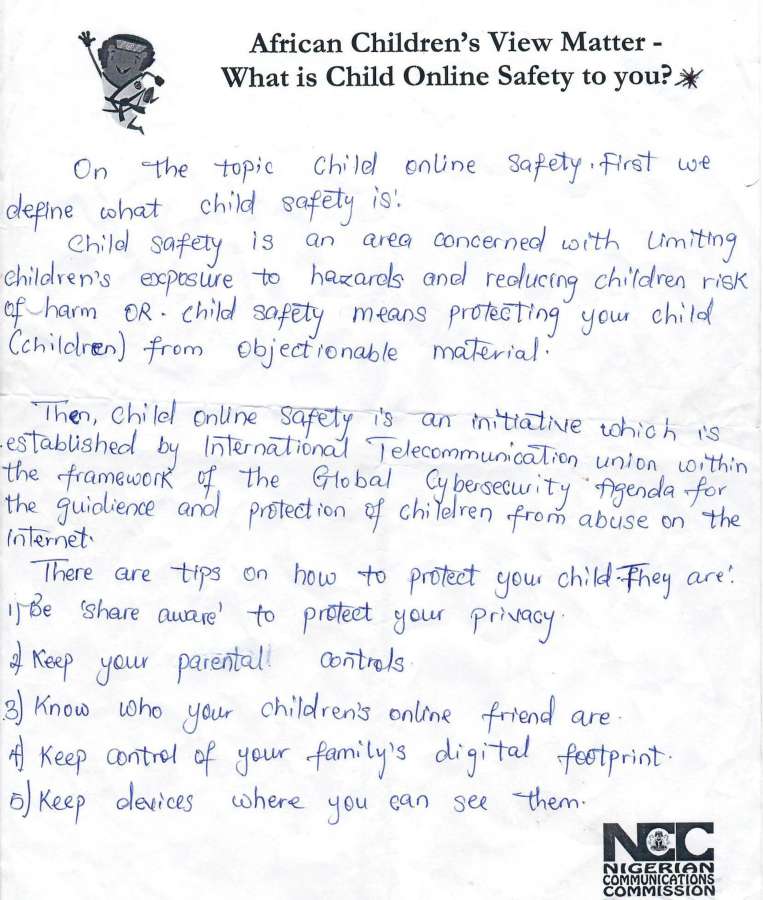 African Children's View Matter -
What is Child Online Safety to you?
On the topic child online safety. First we
define what child safety is:
Child safety is an area concerned with limiting
children's exposure to hazards and reducing children risk
of harm OR. child safety means protecting your child
(children) from objectionable material.
Then, child online safety is an initiative which is
established by International Telecommunication union within
the framework of the Global Cybersecurity Agenda for
the guidience and protection of children from abuse on the
internet.
There are tips on how to protect your child. They are:
1) Be 'share aware' to protect your privacy.
2) Keep your parental controls.
3) Know who your children's online friend are.
4) Keep control of your family's digital footprint.
5) Keep devices where you can see them.
NCC
NIGERIAN
COMMUNICATIONS
COMMISSION